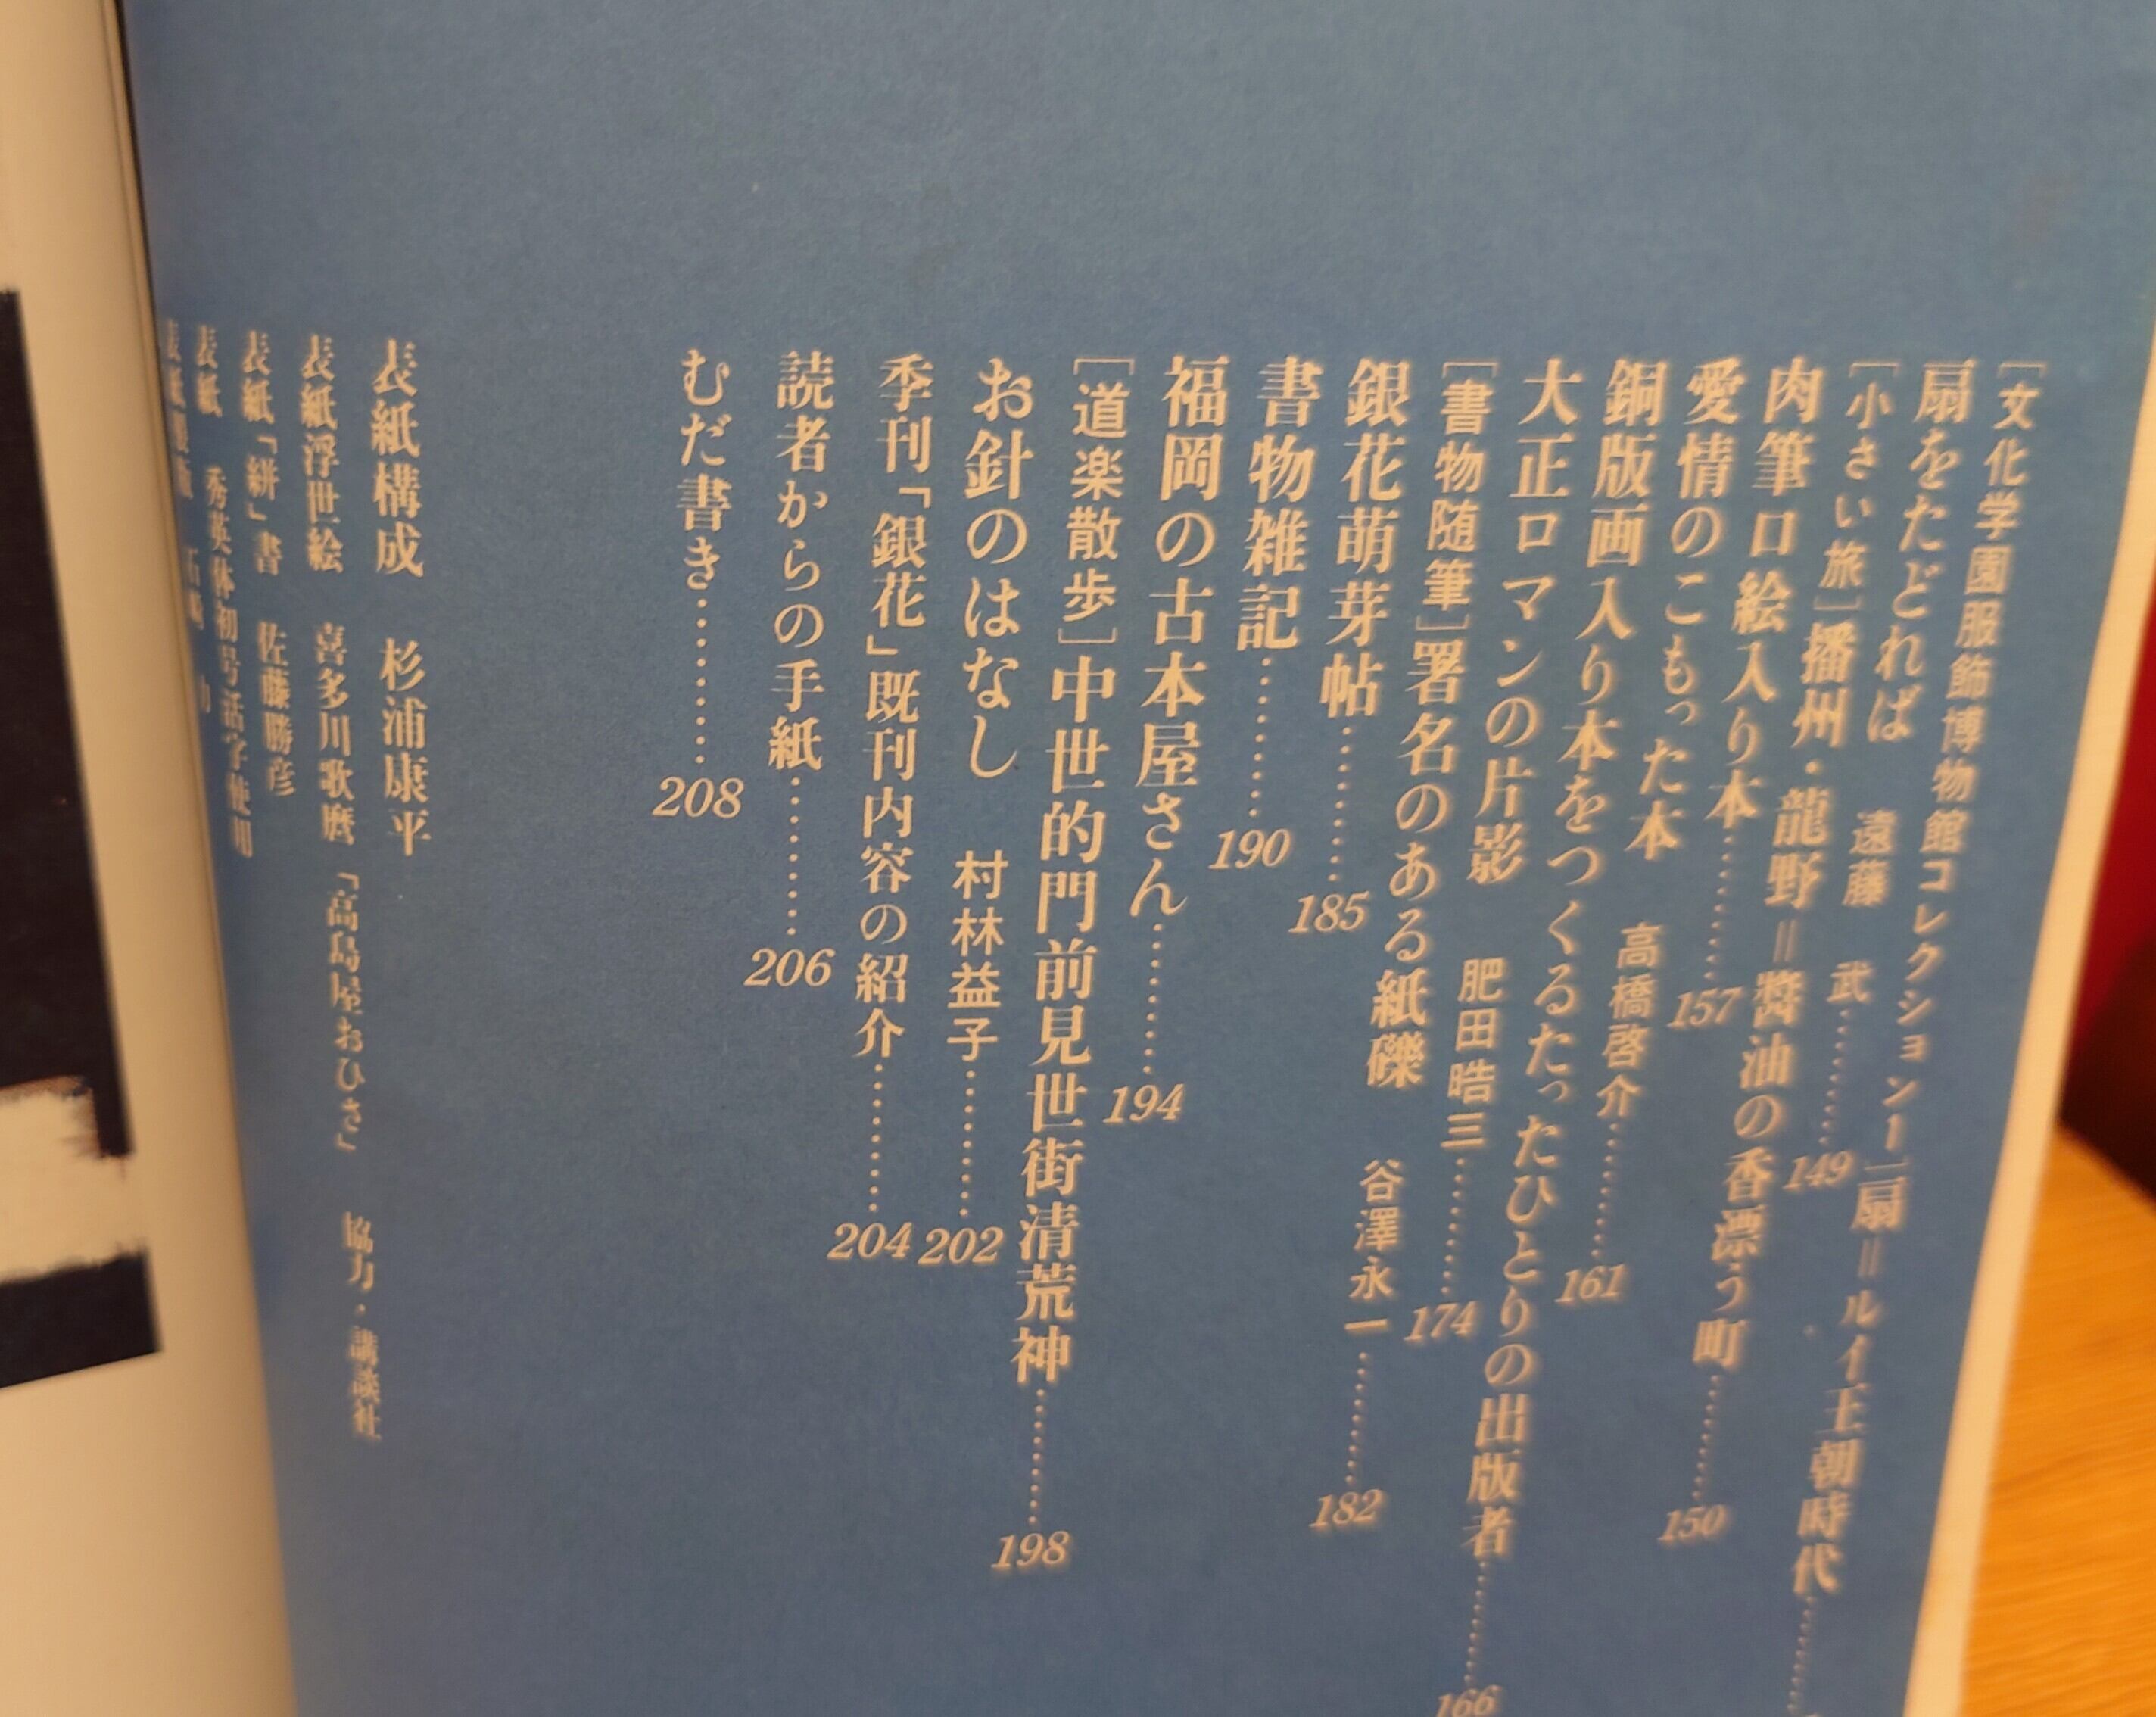 [文化学園服飾博物館コレクション―]扇＝ルイ王朝時代…………
扇をたどれば　遠藤　武…………149
[小さい旅]播州・龍野＝醬油の香漂う町…………150
肉筆口絵入り本…………157
愛情のこもった本　高橋啓介…………161
銅版画入り本をつくるたったひとりの出版者…………166
大正ロマンの片影　肥田晧三…………174
[書物随筆]署名のある紙礫　谷澤永一…………182
銀花萌芽帖…………185
書物雑記…………190
福岡の古本屋さん…………194
[道楽散歩]中世的門前見世街清荒神…………198
お針のはなし　村林益子…………202
季刊「銀花」既刊内容の紹介…………204
読者からの手紙…………206
むだ書き…………208
表紙構成　杉浦康平
表紙浮世絵　喜多川歌麿「高島屋おひさ」　協力・講談社
表紙「絣」書　佐藤勝彦
表紙　秀英体初号活字使用